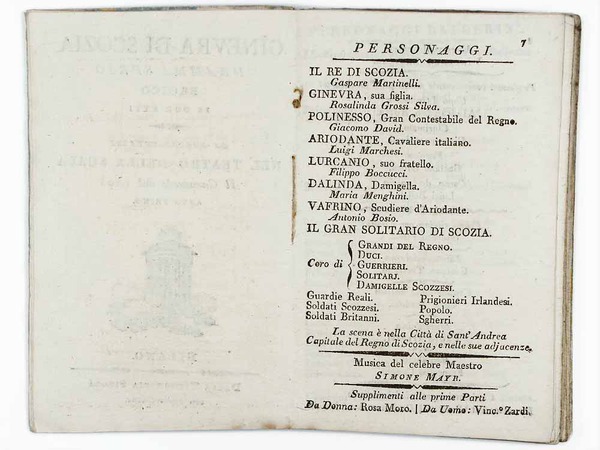 7
PERSONAGGI.
IL RE DI SCOZIA.
Gaspare Martinelli.
GINEVRA, sua figlia.
Rosalinda Grossi Silva.
POLINESSO, Gran Contestabile del Regno.
Giacomo David.
ARIODANTE, Cavaliere italiano.
Luigi Marchesi.
LURCANIO, suo fratello.
Filippo Boccucci.
DALINDA, Damigella.
Maria Menghini.
VAFRINO, Scudiere d'Ariodante.
Antonio Bosio.
IL GRAN SOLITARIO DI SCOZIA.
Coro di
GRANDI DEL REGNO.
DUCI.
GUERRIERI.
SOLITARJ.
DAMIGELLE SCOZZESI.
Guardie Reali. Prigionieri Irlandesi.
Soldati Scozzesi. Popolo.
Soldati Britanni. Sgherri.
La scena è nella Città di Sant'Andrea
Capitale del Regno di Scozia, e nelle sue adjacenze.
Musica del celebre Maestro
SIMONE MAYR.
Supplimenti alle prime Parti
Da Donna: Rosa Moro. | Da Uomo: Vinc.º Zardi.